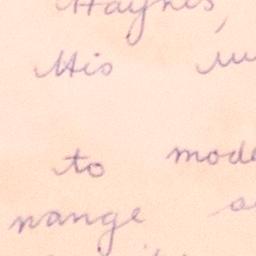 Haynes,
His
to mode
range